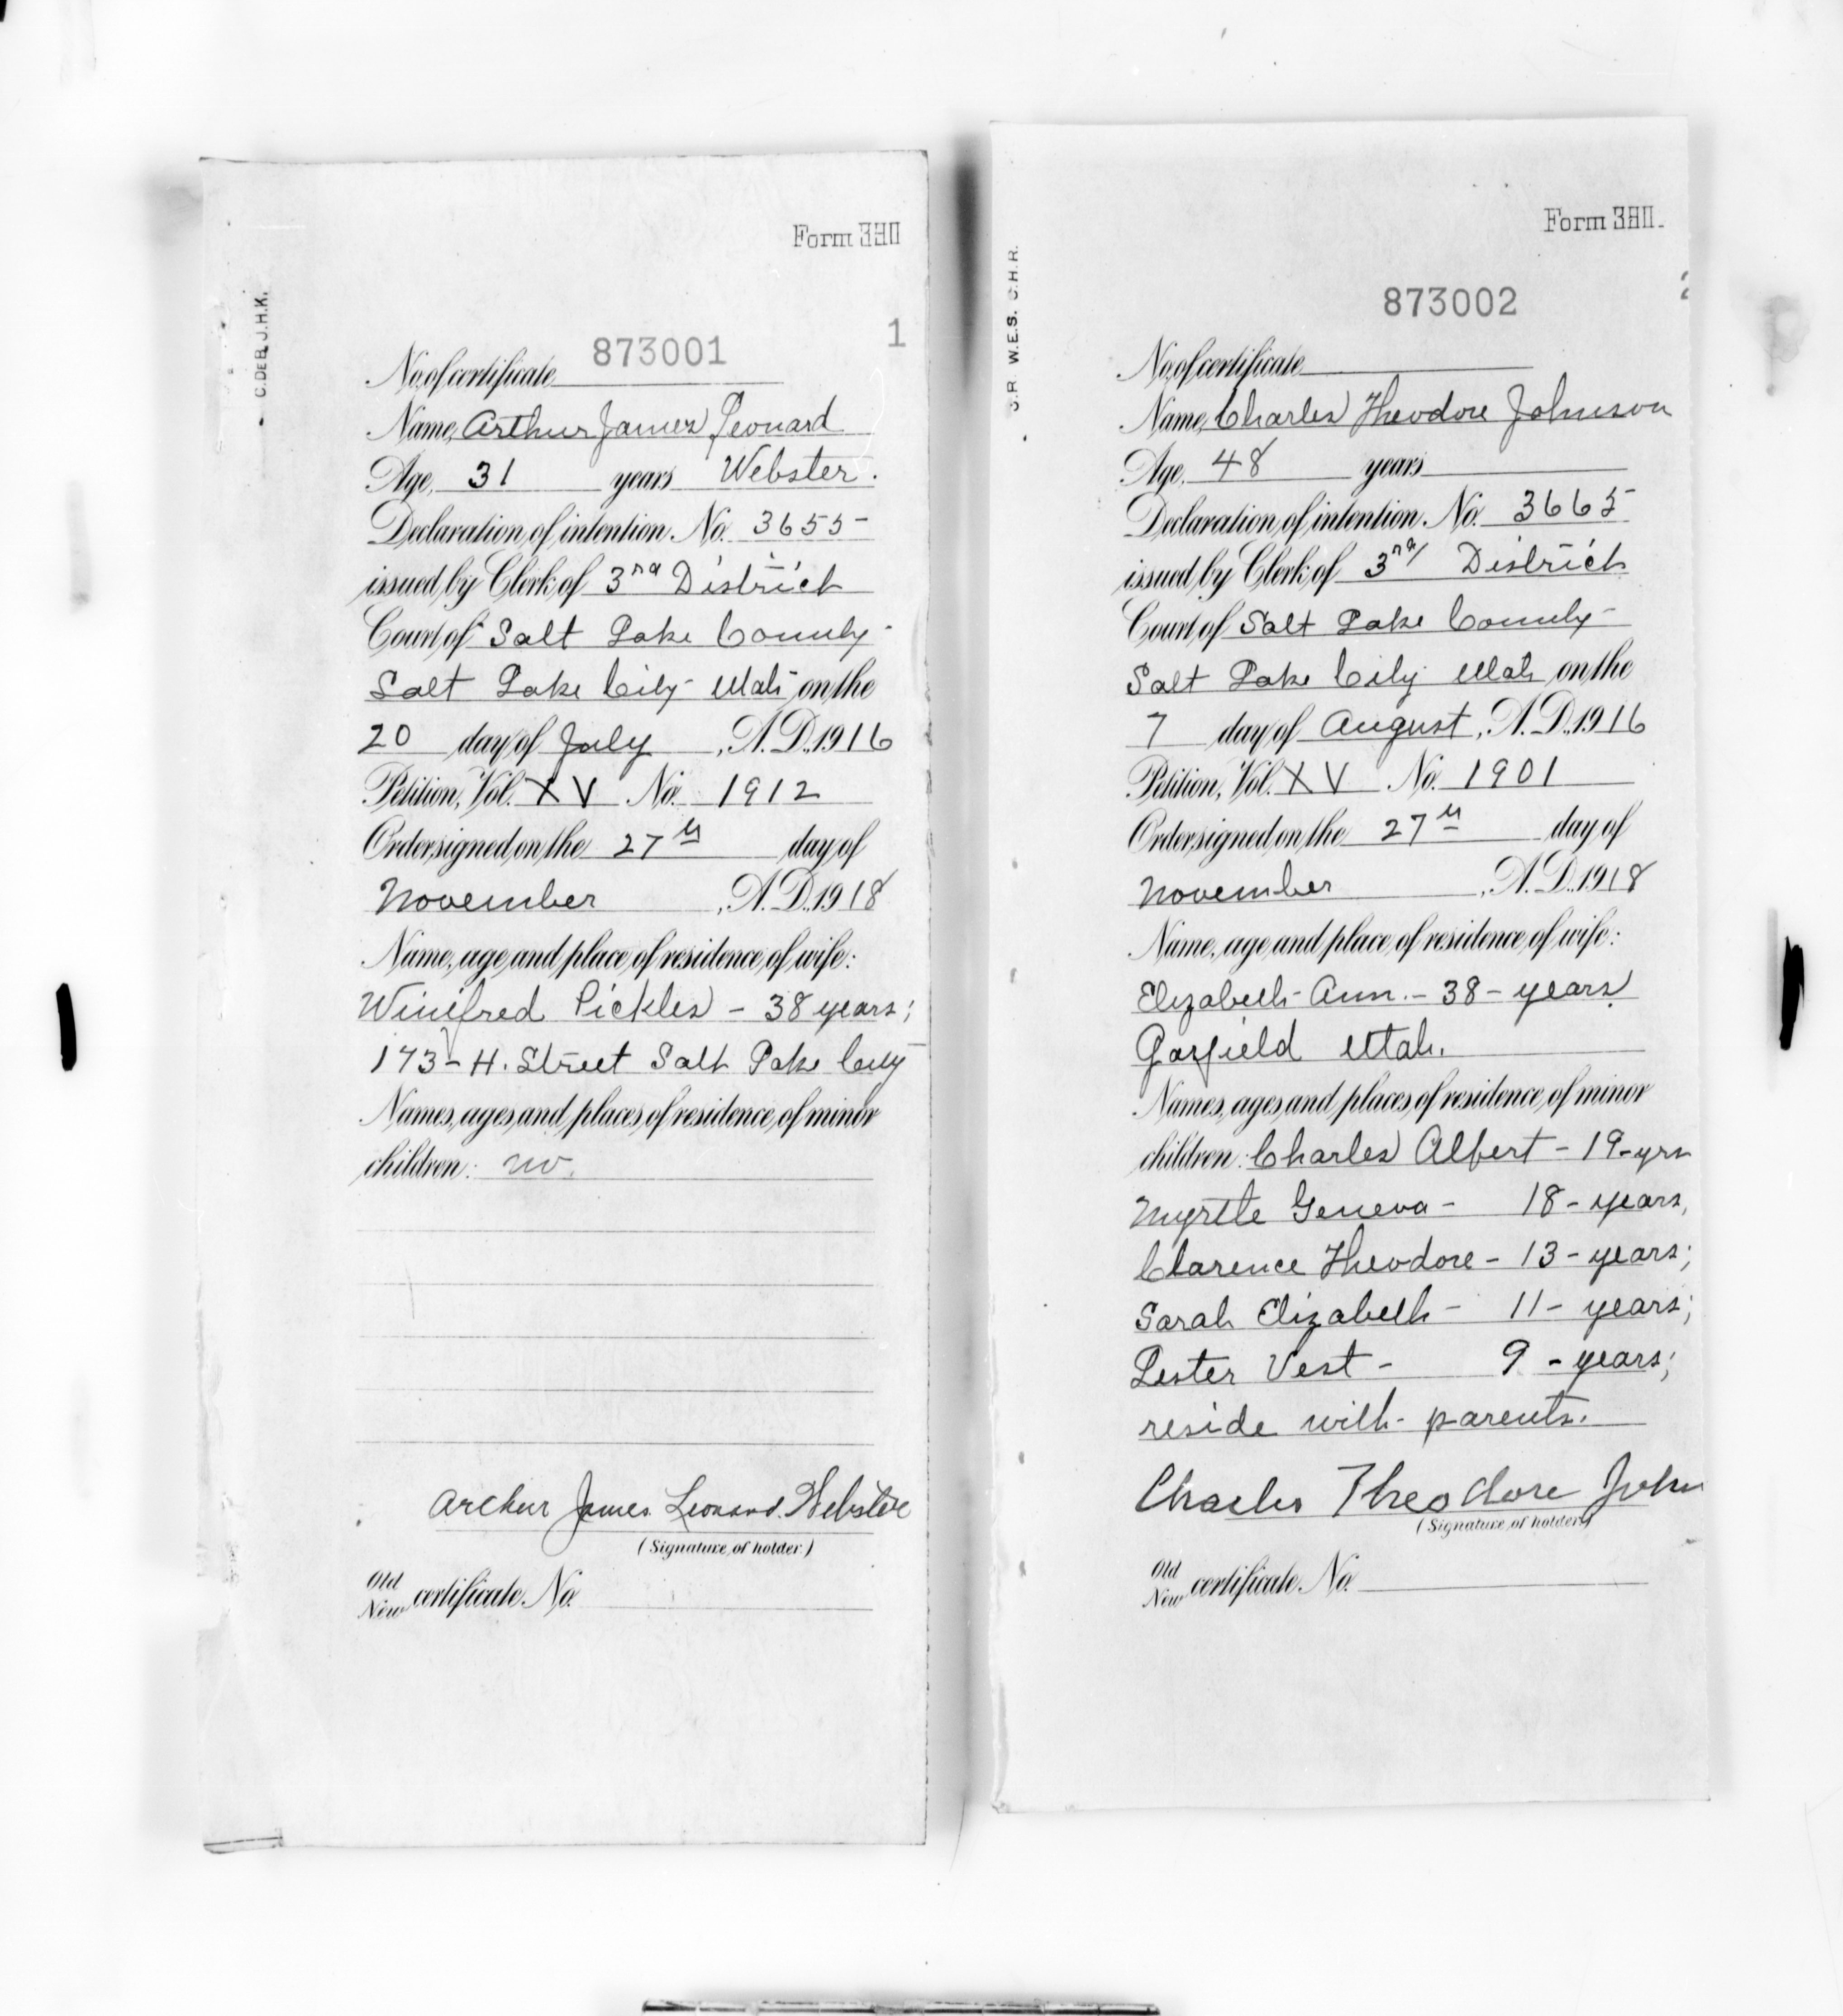 Form 380
C. DEB. J.H.K.
1
873001
No. of certificate
Name, Arthur James Leonard
Age, 31 years Webster.
Declaration of intention No. 3655
issued by Clerk of 3rd District
Court of Salt Lake County
Salt Lake City Utah on the
20 day of July, A.D. 1916
Petition, Vol. XV No. 1912
Order signed on the 27th day of
November, A.D. 1918
Name, age and place of residence of wife:
Winifred Pickles - 38 years;
173 - H. Street Salt Lake City
Names, ages and places of residence of minor
children: no.
Arthur James Leonard Webster
(Signature of holder)
Old
New certificate No.
Form 380.
W.E.S. C.H.R.
873002
No. of certificate
Name, Charles Theodore Johnson
Age, 48 years
Declaration of intention No. 3665
issued by Clerk of 3rd District
Court of Salt Lake County
Salt Lake City Utah on the
7 day of August, A.D. 1916
Petition, Vol. XV No. 1901
Order signed on the 27th day of
November, A.D. 1918
Name, age and place of residence of wife:
Elizabeth Ann. - 38 - years
Garfield Utah.
Names, ages and places of residence of minor
children: Charles Albert - 19 - yrs
Myrtle Geneva - 18 - years,
Clarence Theodore - 13 - years;
Sarah Elizabeth - 11 - years;
Lester Vest - 9 - years;
reside with parents.
Charles Theodore John
(Signature of holder)
Old
New certificate No.